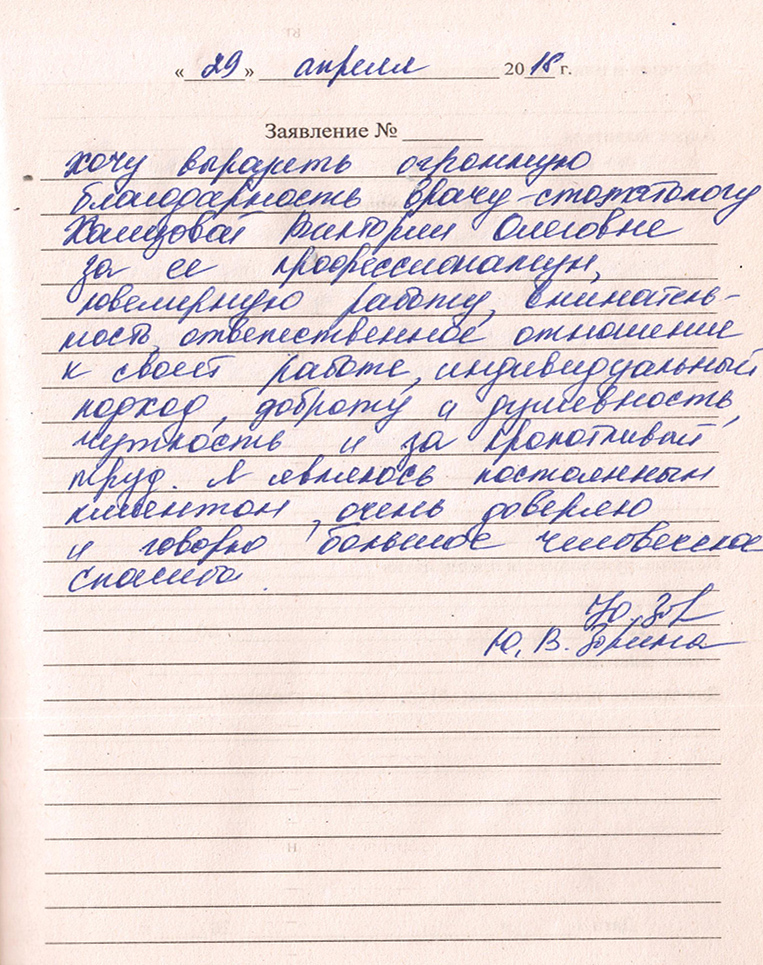 « 29 » апреля 2018 г.
Заявление №
Хочу выразить огромную
благодарность врачу-стоматологу
Виктории Олеговне
за ее профессионализм,
ювелирную работу, вниматель-
ность, ответственное отношение
к своей работе, индивидуальный
подход, доброту и душевность,
чуткость и за кропотливый
труд. Я являюсь постоянным
клиентом, очень доверяю
и говорю большое человеческое
спасибо.
Ю. В.